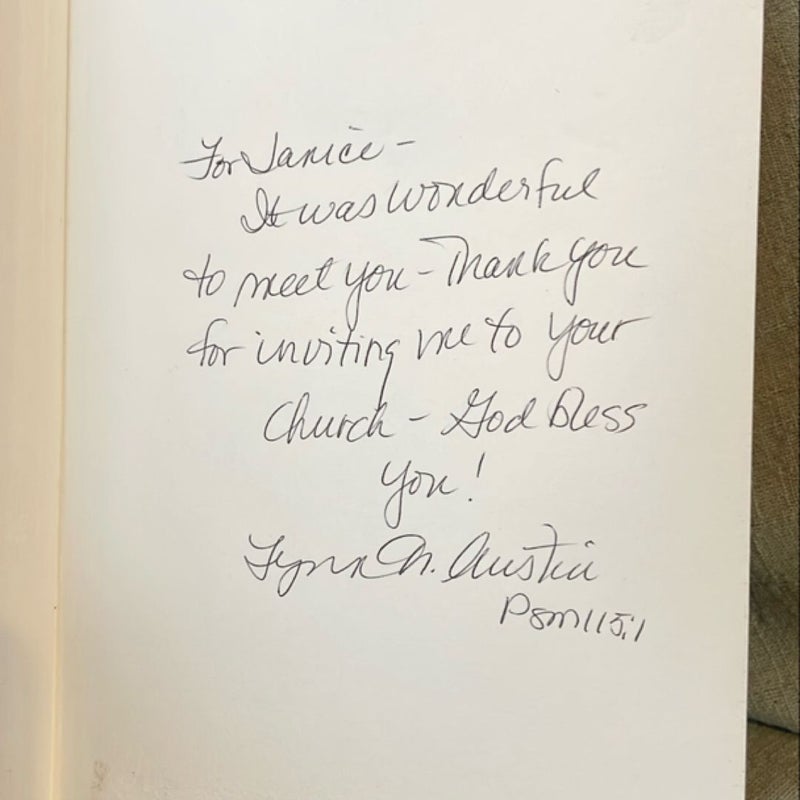 For Janice -
It was wonderful
to meet you - Thank you
for inviting me to your
Church - God Bless
You!
Lynn N. Austin
Psm 115:1